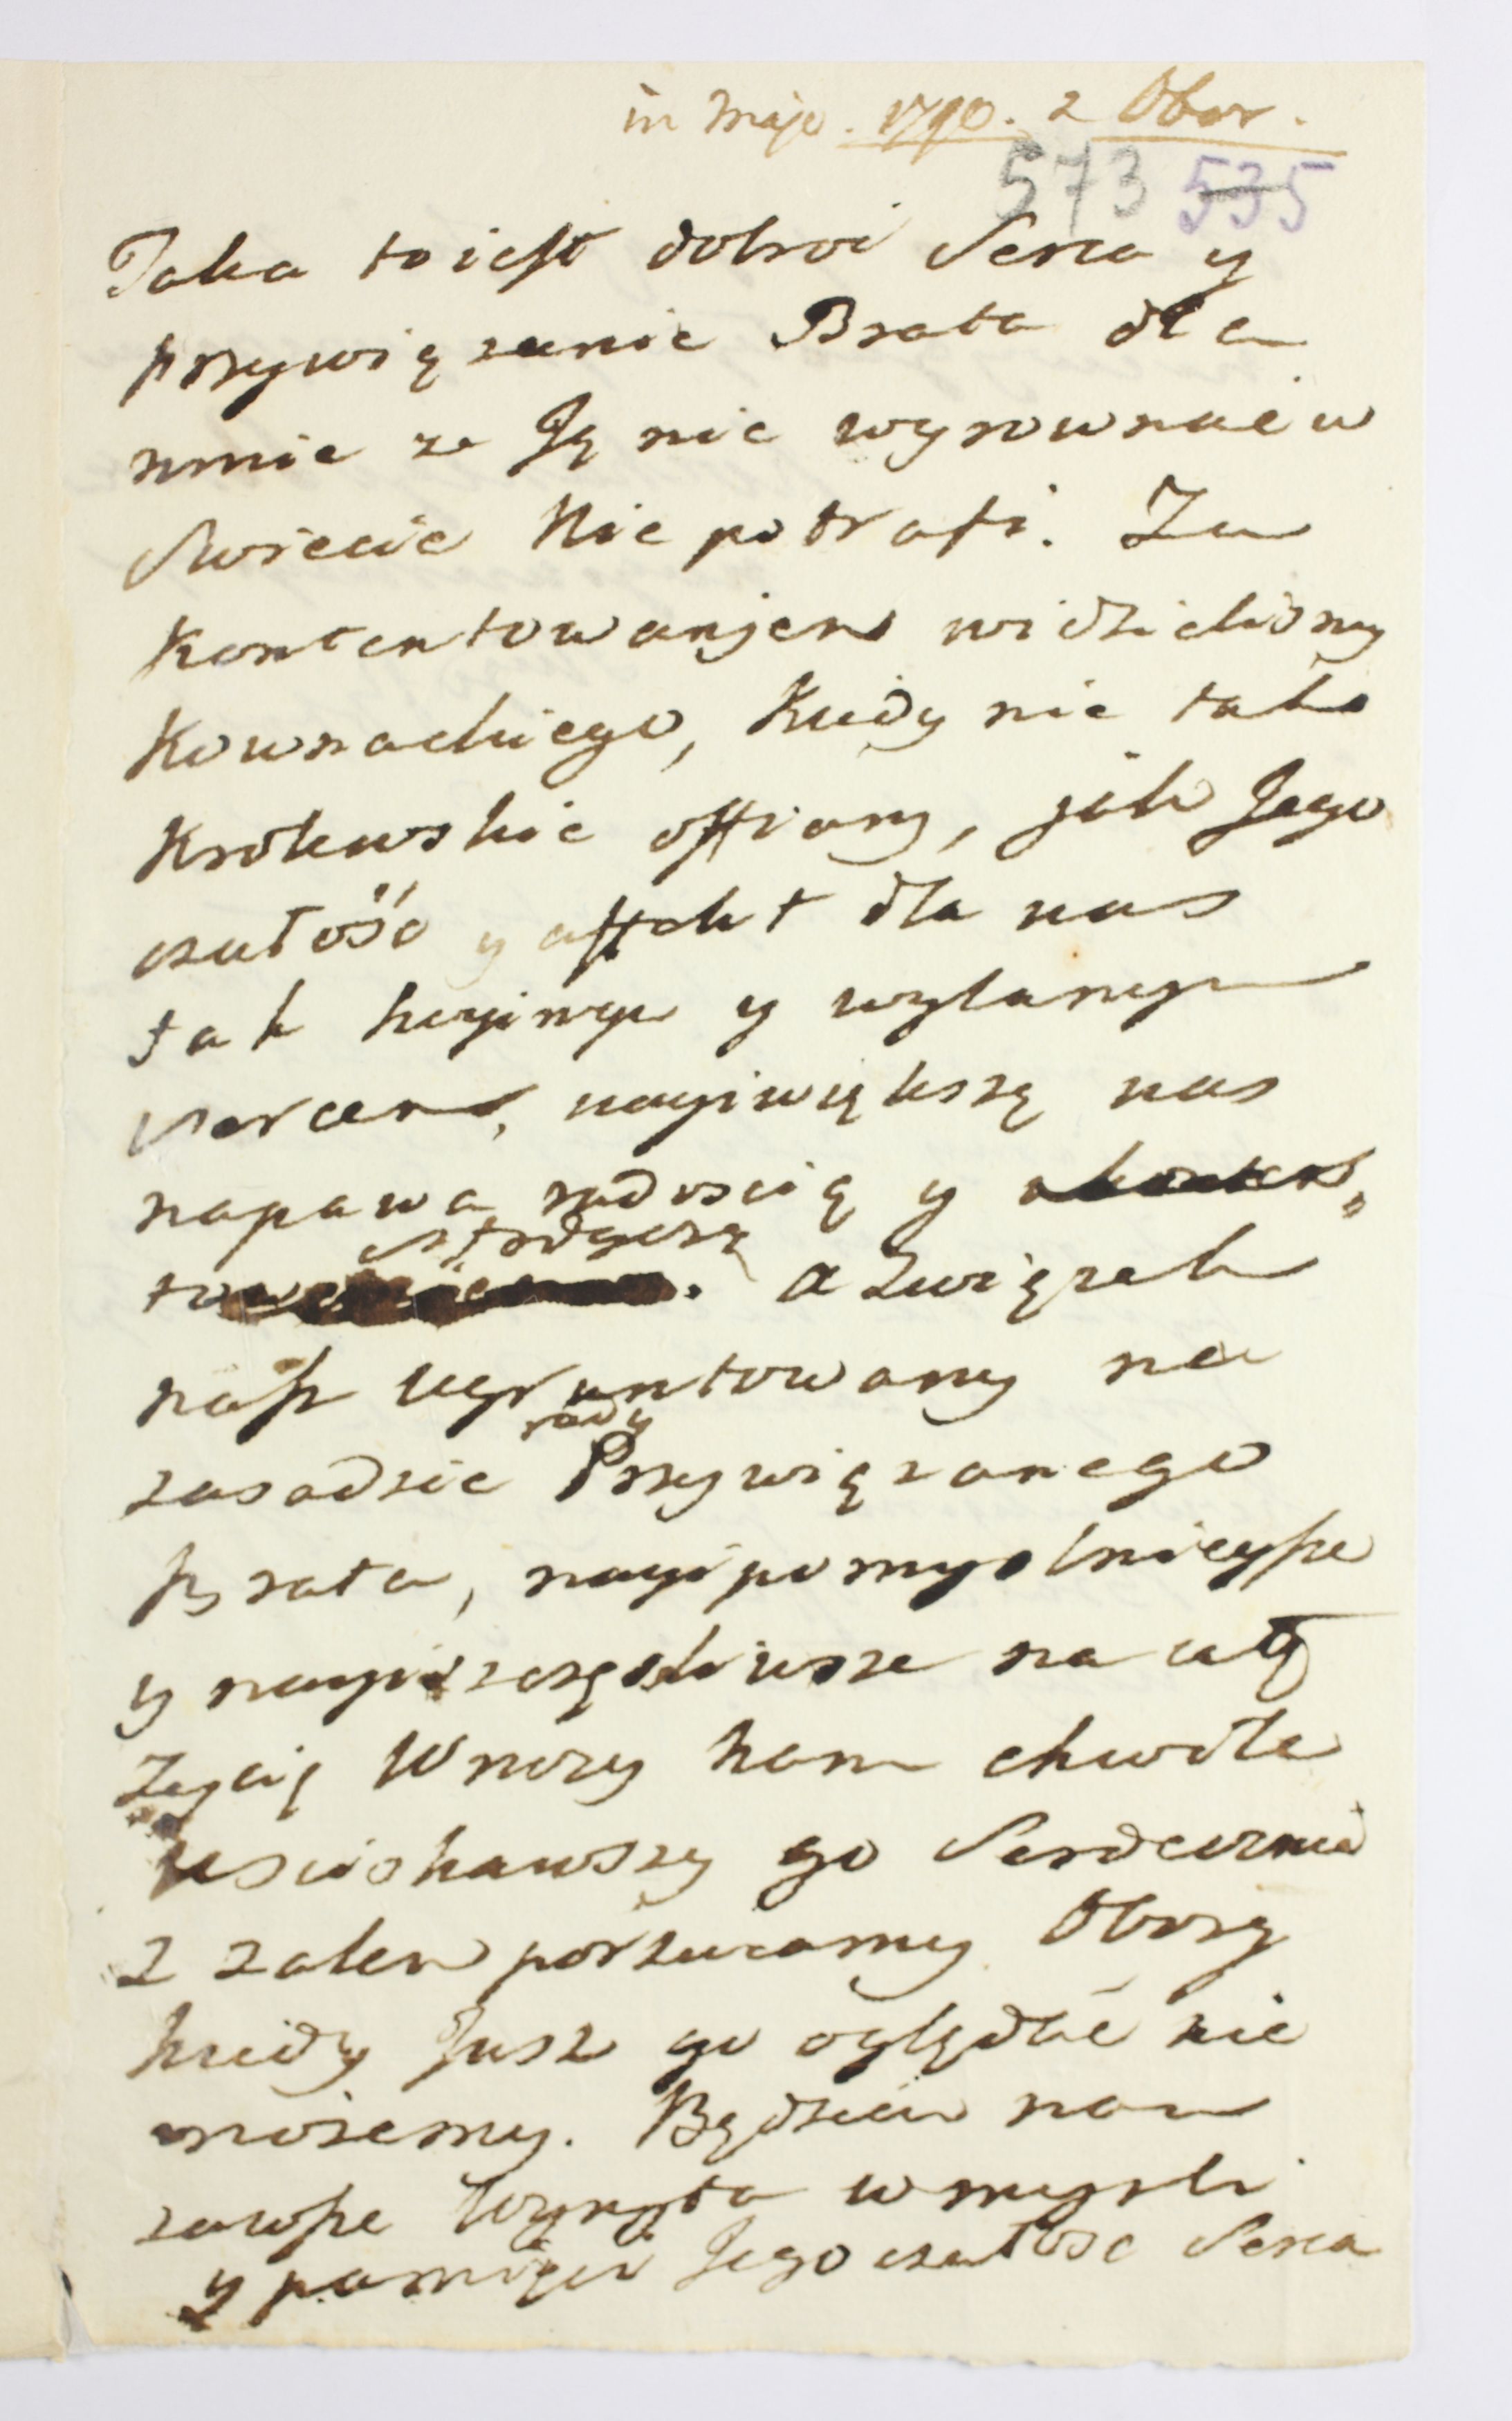 in Majo. 1790. z Obor.
573 535
Taka to iest dobroć Serca y
przywiązanie Brata dla
mnie ze Ją nic wyrownać w
Swiecie Nie potrafi. Z
Kontentowanjem widzielismy
Kownackiego, Kiedy nie tak
Krolewskie offiary, jak Jego
czułość y affekt dla nas
tak hoyinym y wylanym
Sercem, nayiwiększą nas
napawa radoscią y
słodyczą
a Związek
nasz ugruntowany na
rady
zasadzie Przywiązanego
Brata, nayipomyslnieysze
y nayiszczęsliwsze na całę
Zycię Wnozy nam chwile
Usciskawszy go Serdecznie
z zalem porzucamy Obory
kiedy Jusz go oglądać nie
mozemy. Będzie nam
zawsze wyryta w mysli
y pamięci Jego czułosc Serca